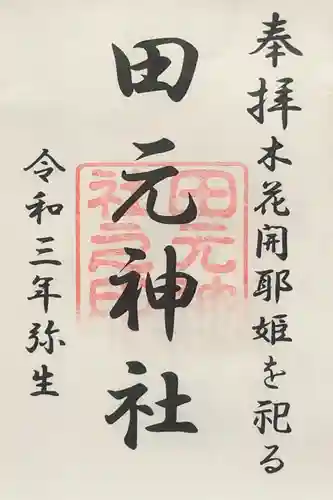 奉拝
木花開耶姫を祀る
田元神社
田元神社之印
令和三年弥生